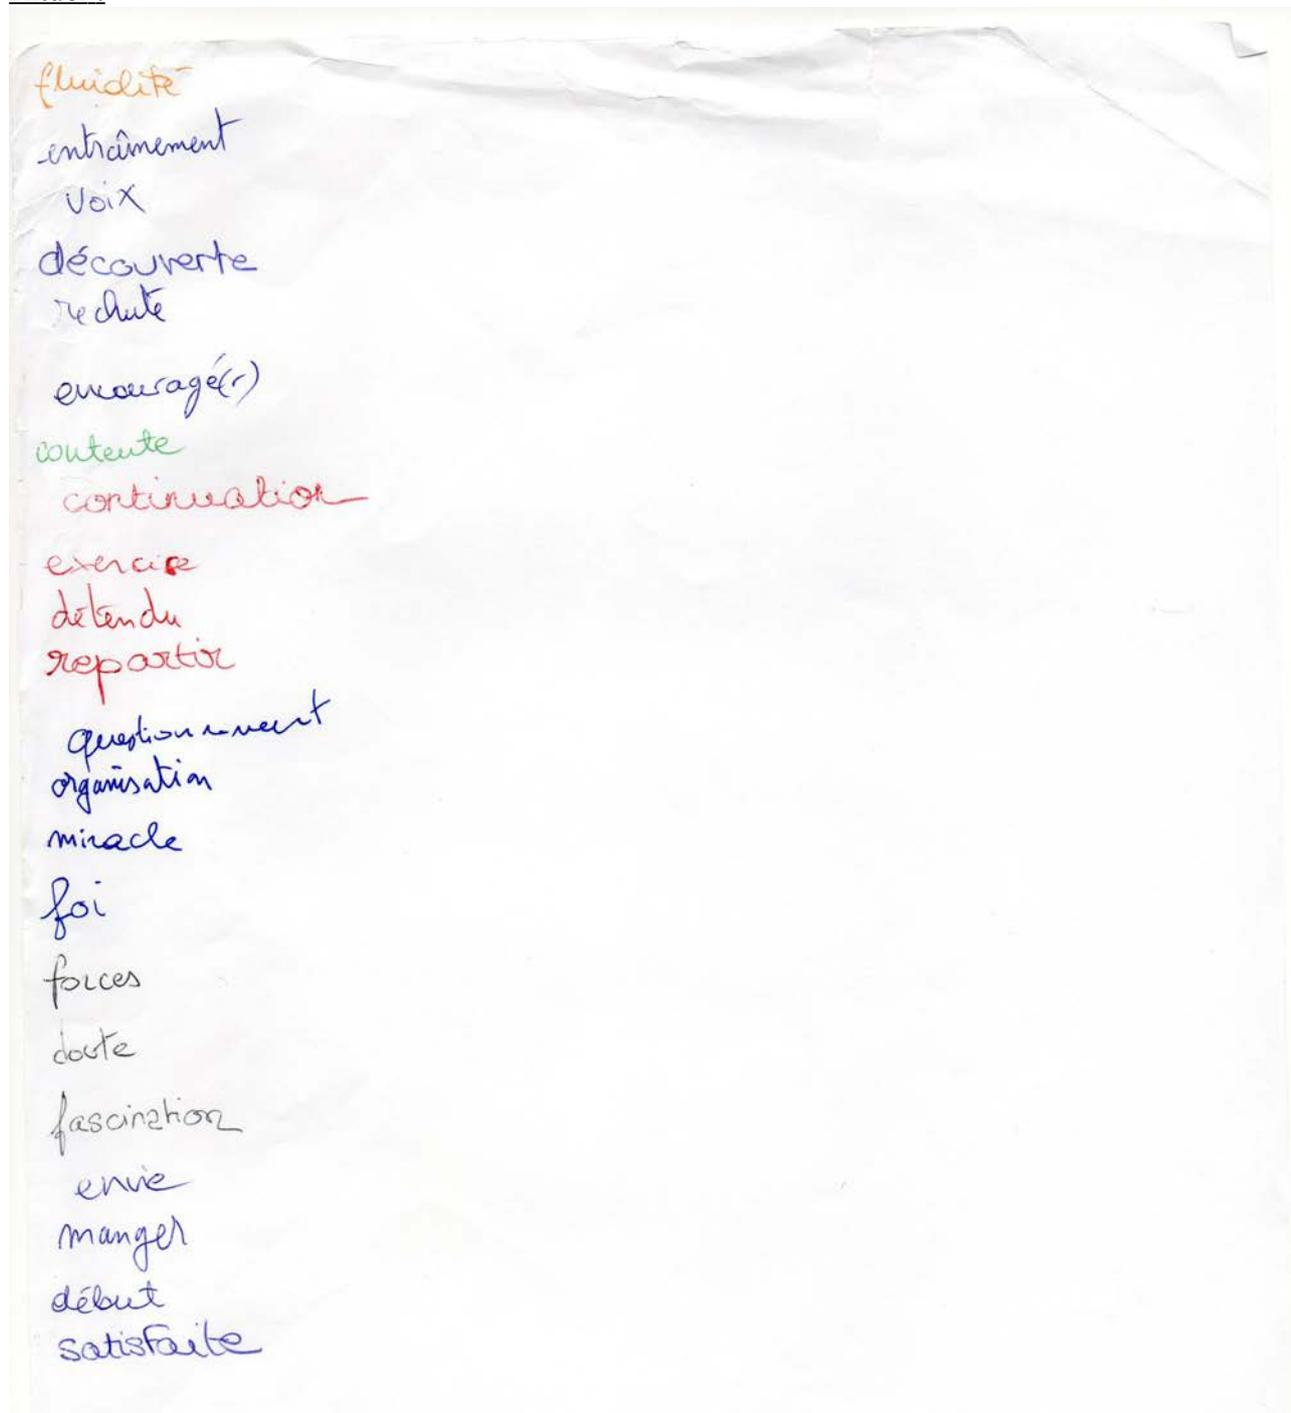 fluidité
entraînement
voix
découverte
rechute
encouragé(r)
contente
continuation
exercice
détendu
repartir
questionnement
organisation
miracle
foi
forces
doute
fascination
envie
manger
début
satisfaite